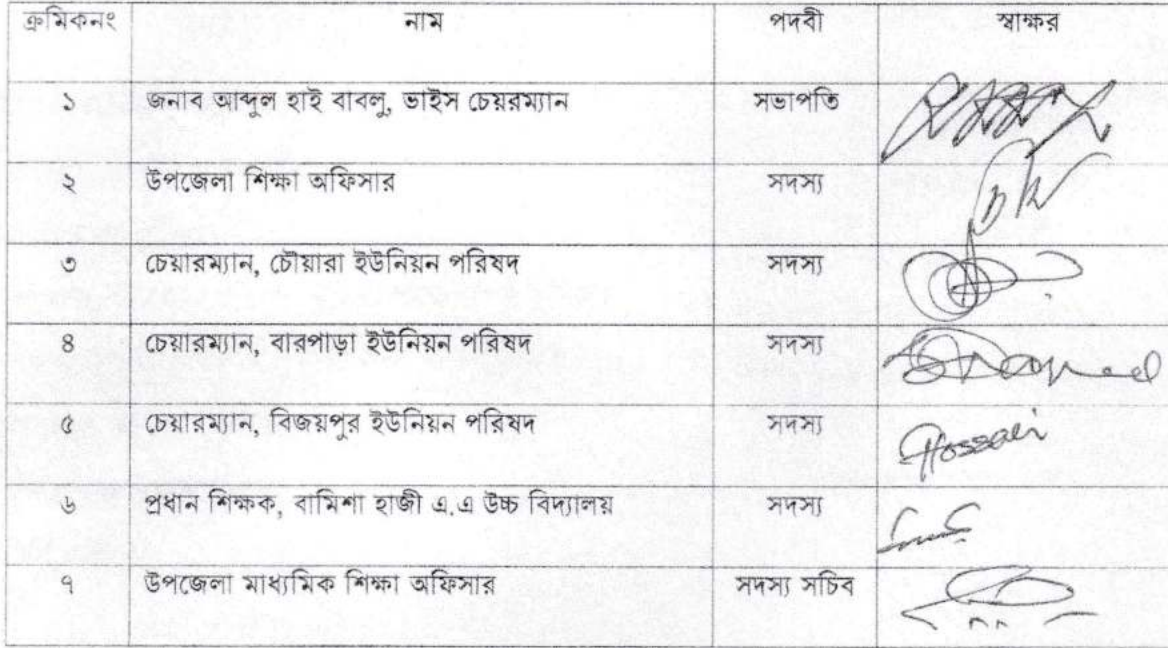 ক্রমিকনং নাম পদবী স্বাক্ষর
১ জনাব আব্দুল হাই বাবলু, ভাইস চেয়রম্যান সভাপতি
২ উপজেলা শিক্ষা অফিসার সদস্য
৩ চেয়ারম্যান, চৌয়ারা ইউনিয়ন পরিষদ সদস্য
৪ চেয়ারম্যান, বারপাড়া ইউনিয়ন পরিষদ সদস্য
৫ চেয়ারম্যান, বিজয়পুর ইউনিয়ন পরিষদ সদস্য Hossain
৬ প্রধান শিক্ষক, বামিশা হাজী এ.এ উচ্চ বিদ্যালয় সদস্য
৭ উপজেলা মাধ্যমিক শিক্ষা অফিসার সদস্য সচিব